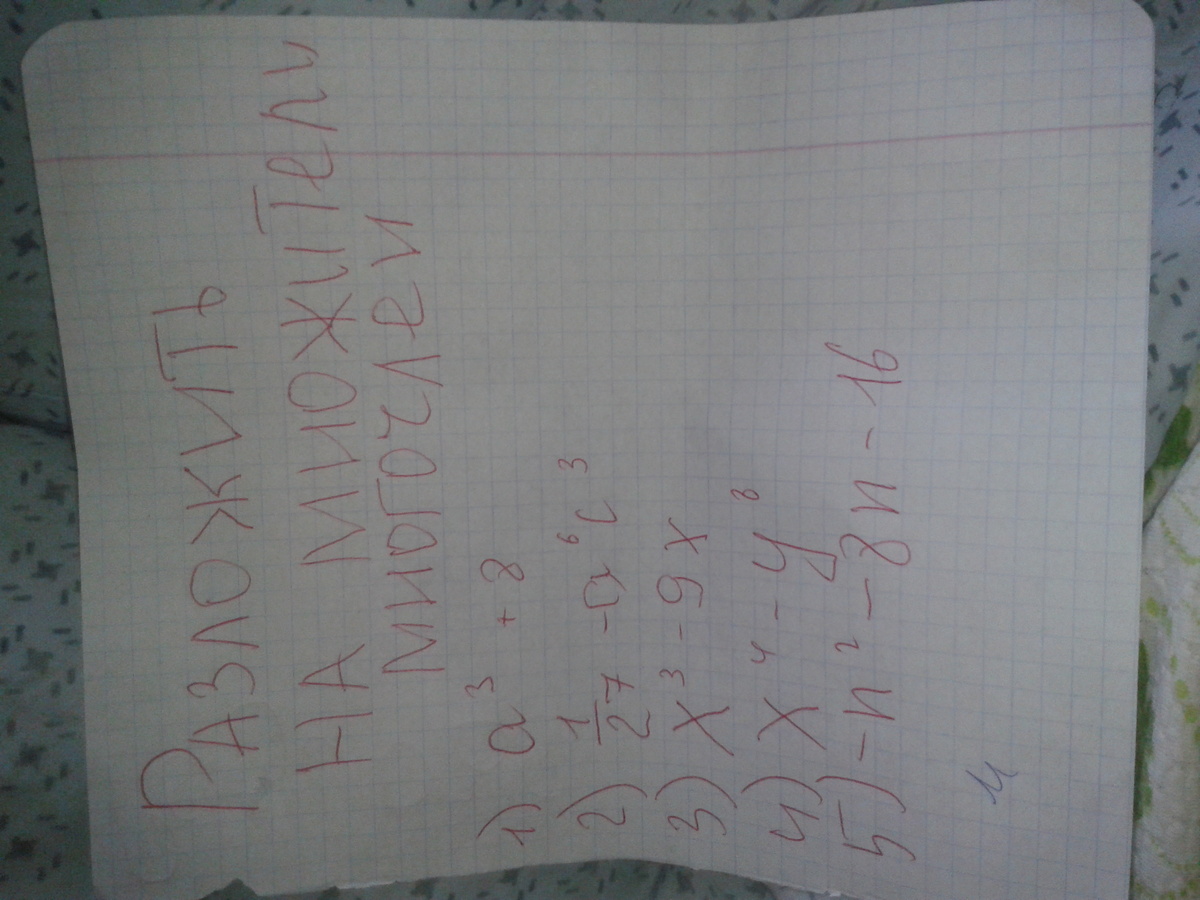 РАЗЛОЖИТЬ
НА МИОЖИТЕЛИ
МИОГОЧЛЕИ
1) a³ + 8
2) 1/27 - a⁶c³
3) x³ - 9x
4) x⁴ - y⁸
5) -n² - 8n - 16